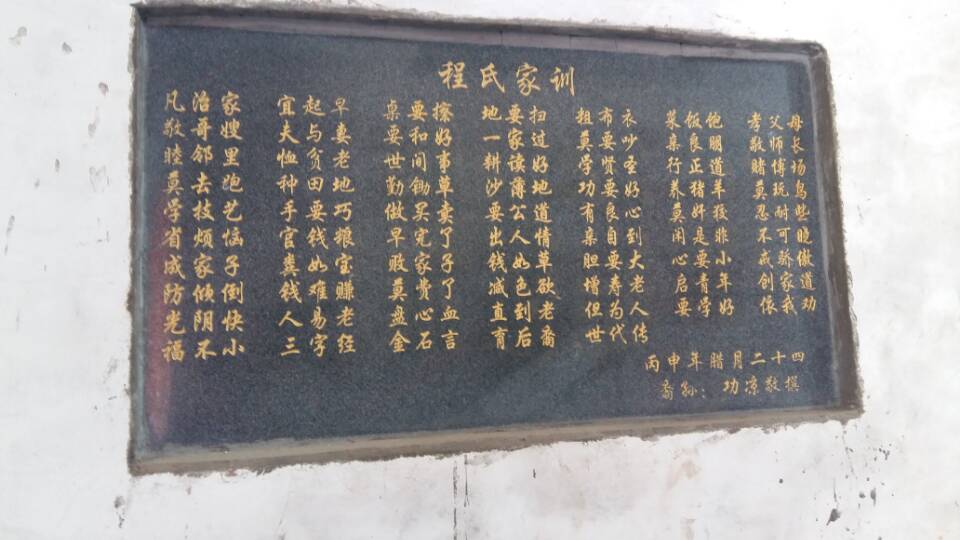 程氏家训
凡治家 宜起早 桌要擦 地要扫 粗布衣 菜饭饱 孝父母
敬哥嫂 夫与妻 要和好 一家过 莫要吵 桌良明 敬师长
睦邻里 恤贫老 世间事 耕读好 学贤圣 行正道 赌博场
莫去跑 种田地 勤锄草 沙薄地 功要好 养猪羊 莫玩鸟
学技艺 手要巧 做买卖 要公道 有良心 莫奸狡 忍耐些
省烦恼 官钱粮 早完了 出人情 亲自到 闲是非 不可晓
成家子 粪如宝 败家子 钱如草 胆要大 心要小 戒骄傲
防倾倒 钱难赚 莫费了 减色欲 增寿老 启青年 创家道
光阴快 人易老 盘心血 直到老 但为人 要学好 像我劝
福不小 三字经 金石言 育后裔 世代传
丙申年腊月二十四
裔孙：功凉敬撰